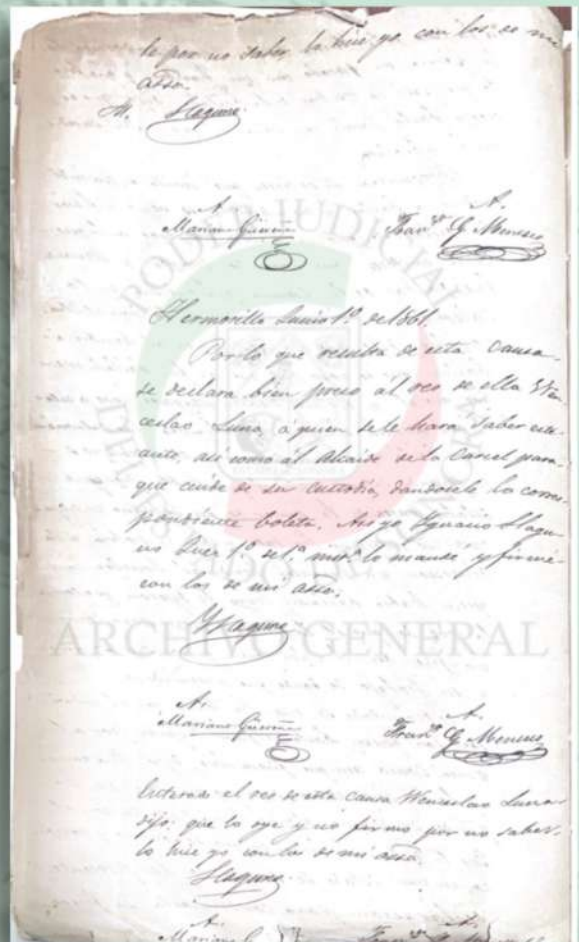 te por no saber lo hice yo con los de mi
assa.
M. Llaguno
A. A.
Mariano Güereña Fran.co G. Meneses
Hermosillo Junio 1.º de 1861
Por lo que resulta de esta causa
se declara bien preso al reo de ella Wen
ceslao Luna, a quien se le hará saber este
auto, asi como al Alcaide de la Carcel para
que cuide de su custodia, dandosele la corres
pondiente boleta. Asi yo Ygnacio Llagu-
no Juez 1.º de 1.ª inst.ª lo mandé y firmé
con los de mi assa.
Y. Llaguno
A. A.
Mariano Güereña Fran.co G. Meneses
Enterado el reo de esta causa Wenceslao Luna
dijo: que lo oye y no firmo por no saber,
lo hice yo con los de mi assa.
Llaguno
A. A.
Mariano G
PODER JUDICIAL
DEL ESTADO DE SONORA
ARCHIVO GENERAL